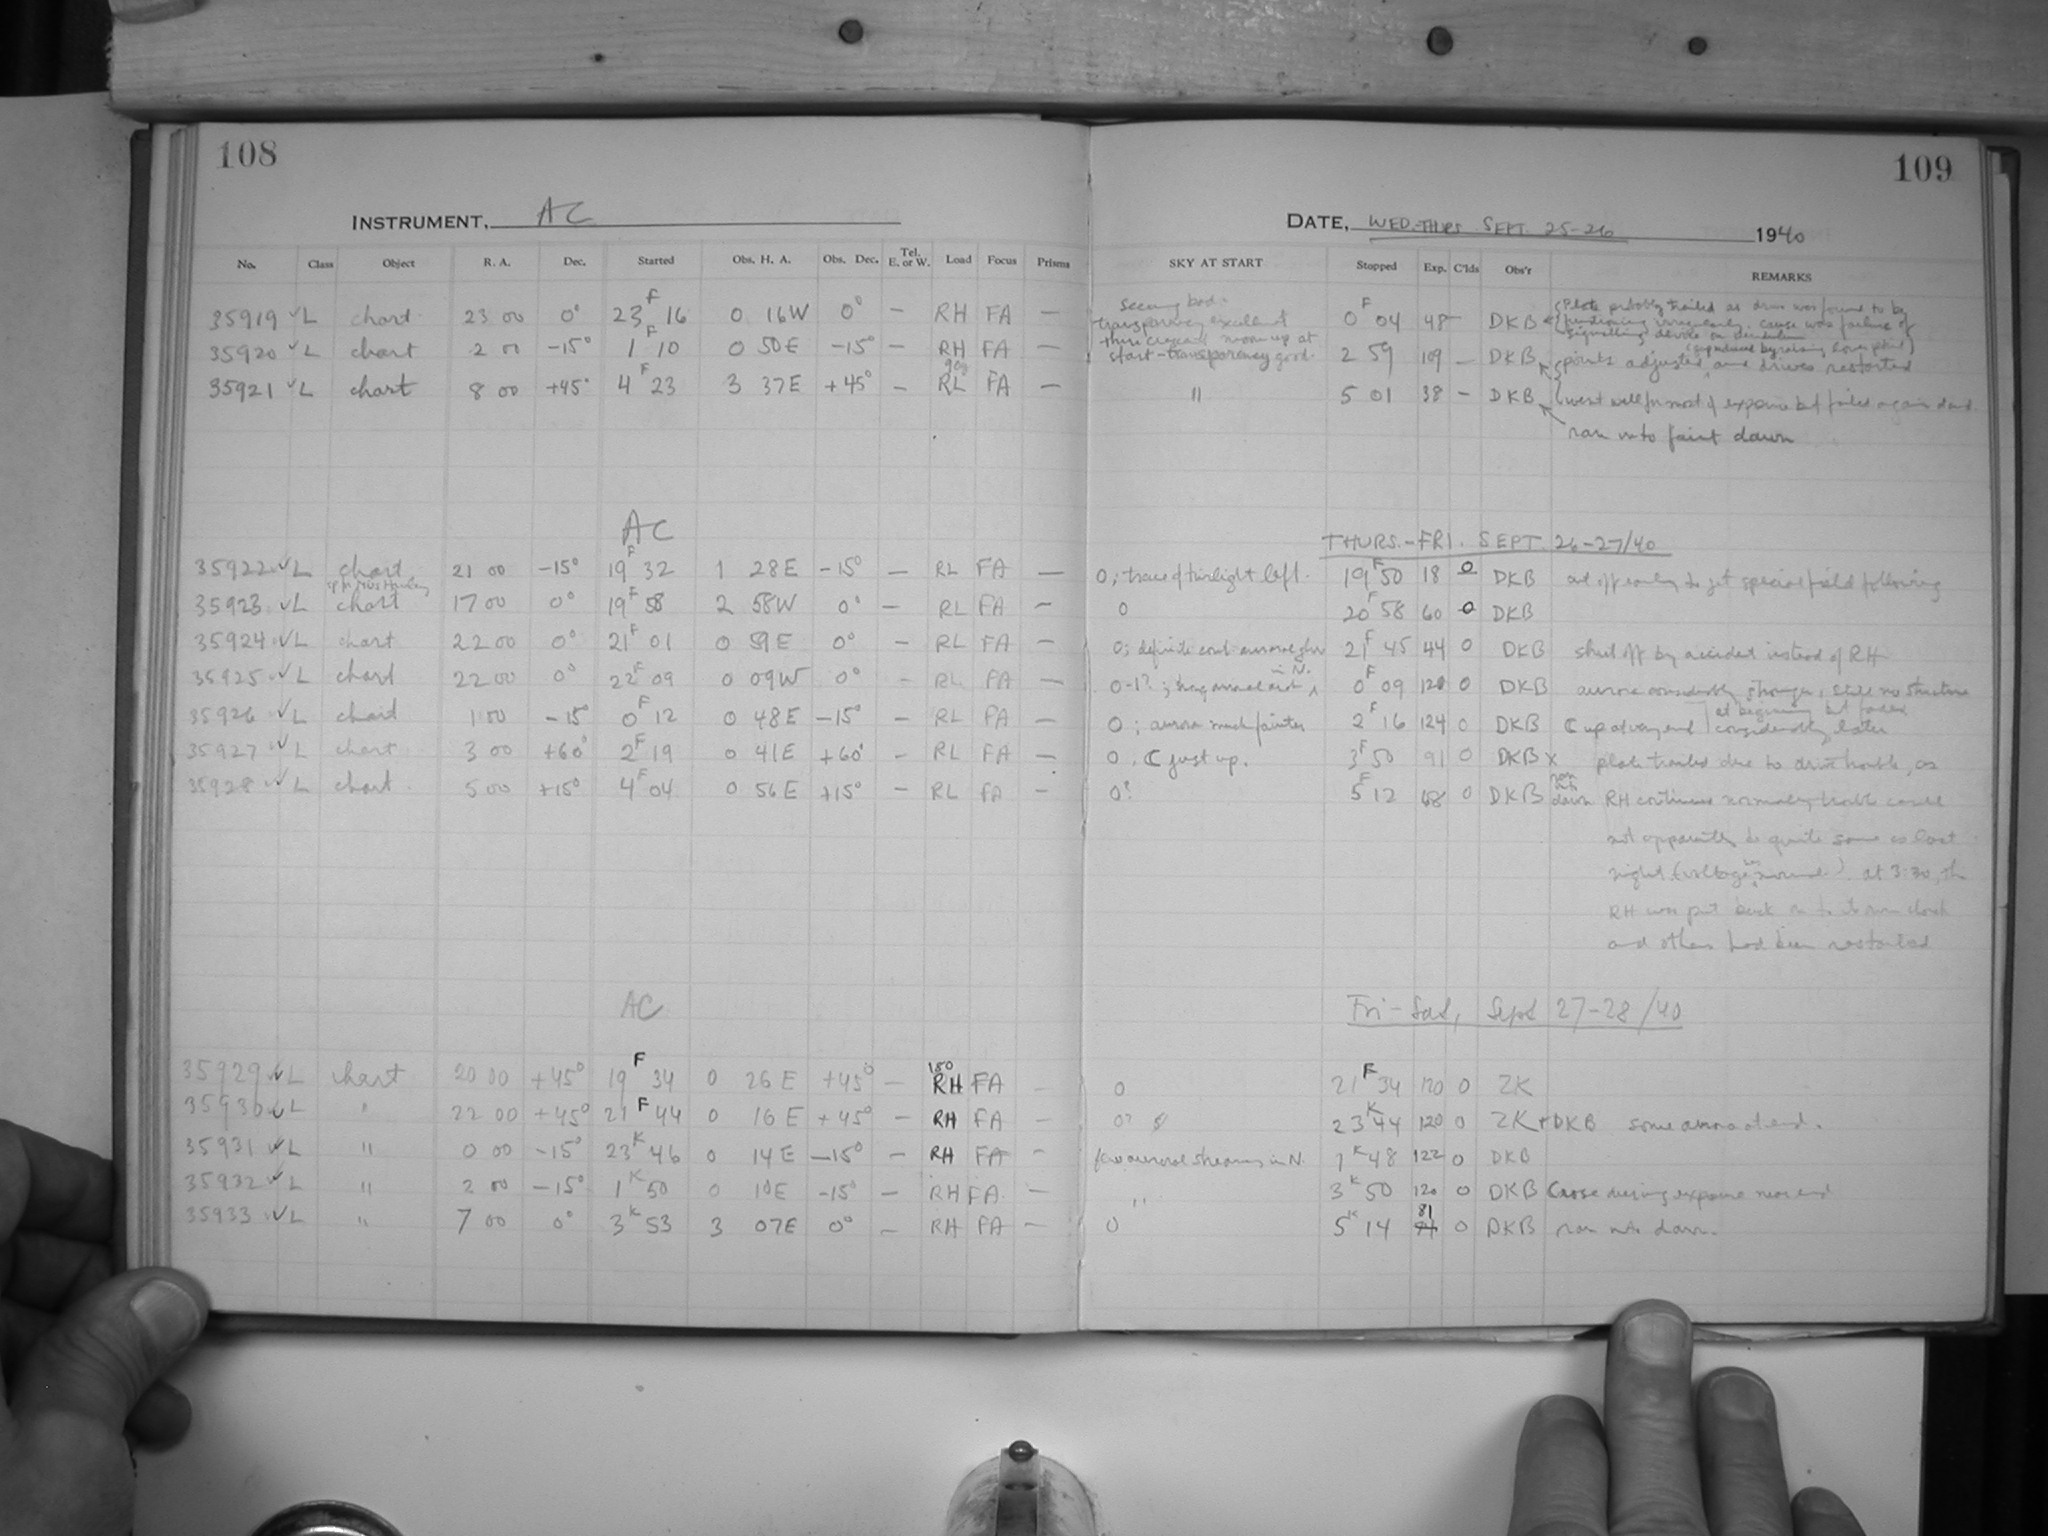 108
109
INSTRUMENT, AC
DATE, WED.-THURS. SEPT. 25-26 1940
No. Class Object R. A. Dec. Started Obs. H. A. Obs. Dec. Tel. E. or W. Load Focus Prisms SKY AT START Stopped Exp. C'lds Obs'r REMARKS
35919 ✓ L chart 23 00 0° 23 F 16 0 16W 0° — RH FA — seeing bad. transparency excellent 0 F 04 48 — DKB Plate probably trailed as drive was found to be functioning irregularly. cause was failure of signalling device on
35920 ✓ L chart 2 00 -15° 1 F 10 0 50E -15° — RH FA — moon up at start - transparency good. 2 59 109 — DKB points adjusted and drives restarted
35921 ✓ L chart 8 00 +45° 4 F 23 3 37E +45° — RL FA — " 5 01 38 — DKB went well for most of exposure but failed again
ran into faint dawn
AC
THURS.-FRI. SEPT. 26-27/40
35922 ✓ L chart 21 00 -15° 19 F 32 1 28E -15° — RL FA — 0; trace of twilight left. 19 F 50 18 0 DKB cut off early to get special field following
35923 ✓ L chart 17 00 0° 19 F 58 2 58W 0° — RL FA — 0 20 F 58 60 0 DKB
35924 ✓ L chart 22 00 0° 21 F 01 0 59E 0° — RL FA — 0; definite auroral glow in N. 21 F 45 44 0 DKB shut off by accident instead of RH
35925 ✓ L chart 22 00 0° 22 F 09 0 09W 0° — RL FA — 0-1?; 0 F 09 120 0 DKB aurora considerably stronger, still no structure
35926 ✓ L chart 1 00 -15° 0 F 12 0 48E -15° — RL FA — 0; aurora much fainter 2 F 16 124 0 DKB ☾ up at very end at beginning but faded considerably later
35927 ✓ L chart 3 00 +60° 2 F 19 0 41E +60° — RL FA — 0. ☾ just up. 3 F 50 91 0 DKB x plate trailed due to drive trouble, as
35928 ✓ L chart 5 00 +15° 4 F 04 0 56E +15° — RL FA — 0? 5 F 12 68 0 DKB ran into dawn RH continues normally, trouble could
not apparently be quite same as last
night (voltage was normal). at 3:30, the
RH was put back on to its own clock
and others had been restarted
AC
Fri-Sat, Sept 27-28/40
35929 ✓ L chart 20 00 +45° 19 F 34 0 26E +45° — 180 RH FA — 0 21 F 34 120 0 ZK
35930 ✓ L " 22 00 +45° 21 F 44 0 16E +45° — RH FA — 0? 23 K 44 120 0 ZK+DKB some aurora at end.
35931 ✓ L " 0 00 -15° 23 K 46 0 14E -15° — RH FA — few auroral streams in N. 1 K 48 122 0 DKB
35932 ✓ L " 2 00 -15° 1 K 50 0 10E -15° — RH FA — " 3 K 50 120 0 DKB ☾ rose during exposure near end
35933 ✓ L " 7 00 0° 3 K 53 3 07E 0° — RH FA — 0 5 K 14 81 0 DKB ran into dawn.